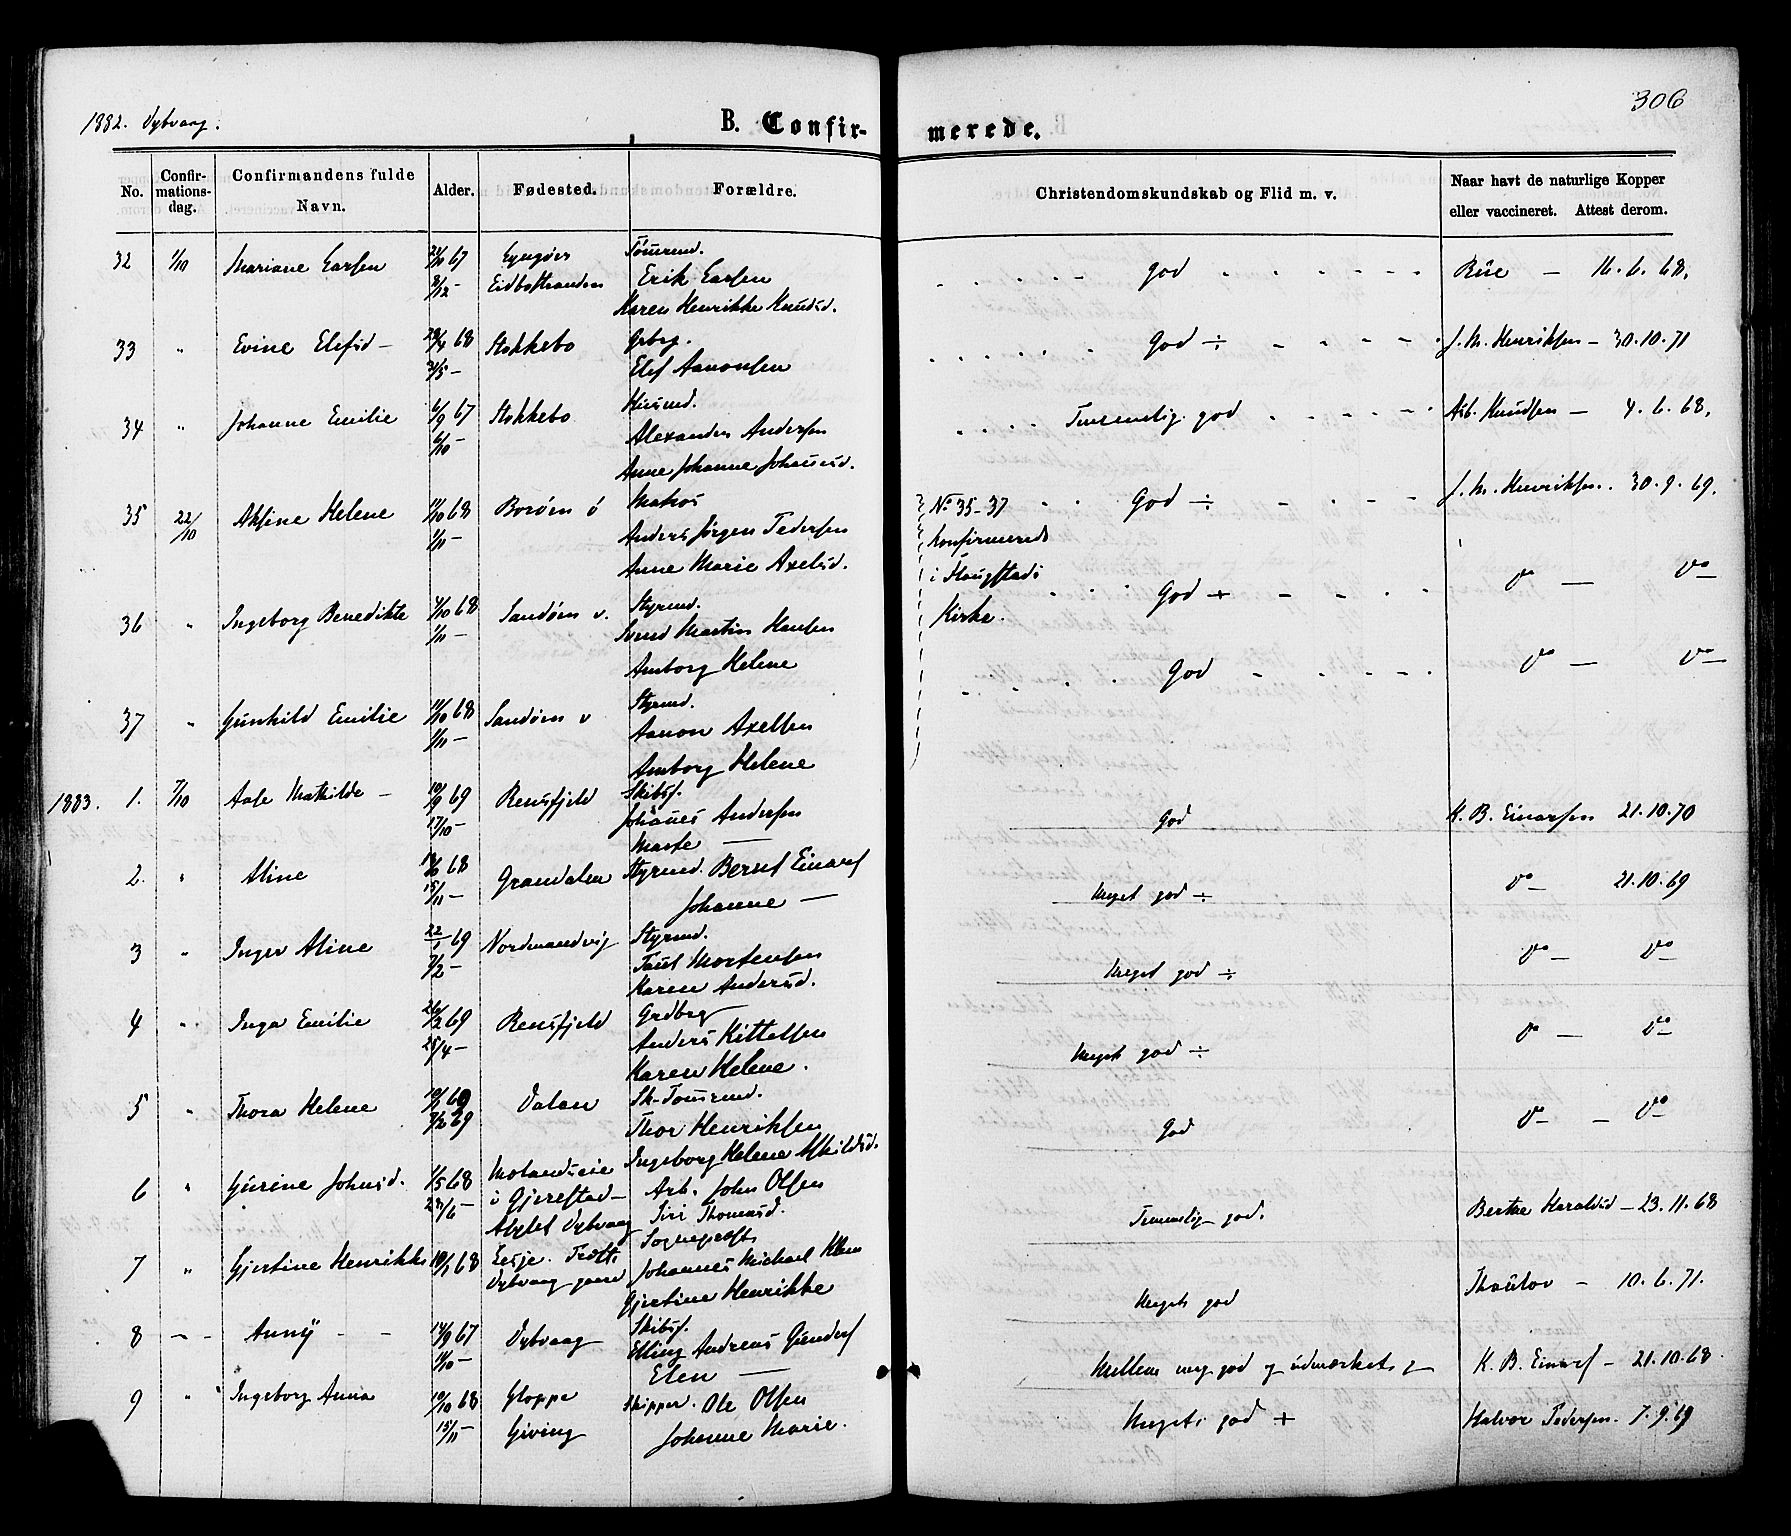 306
1882. Dybvaag.
B. Confir-
merede.
No.
Confir-
mations-
dag.
Confirmandens fulde
Navn.
Alder.
Fødested.
Forældre.
Christendomskundskab og Flid m. v.
Naar havt de naturlige Kopper
eller vaccineret. Attest derom.
32 1/10 Mariane Larsen 67 Lyngør Tømrmd.
Eidbostranden Erik Larsen
Karen Henrikke Knudsd.
God
16.6.68.
33 " Evine Elefsd - 68 Stokkebo Grbrg.
Elef Aanonsen
God ÷
J. M. Henriksen - 30.10.71
34 " Johanne Emilie 6/9 67 Stokkebo Husmd.
6/10 - Alexander Andersen
Anne Johanne Johannesd.
Temmelig god
Asb. Knudsen - 4.6.68.
35 22/10 Aksine Helene 11/10 68 Borøen ø Matros
1/11 - Anders Jørgen Pedersen
Anne Marie Axelsd.
No 35-37
konfirmerede
i Flangstads
Kirke.
God ÷
J. M. Henriksen. 30.9.69.
36 " Ingeborg Benedikte 4/10 68 Sandøen v. Styrmd.
1/11 - Svend Martin Hansen
Amborg Helene
God +
Do - Do
37 " Gunhild Emilie 11/10 68 Sandøen v Styrmd.
1/11 - Aanon Axelsen
Amborg Helene
God
Do - Do
1883. 1. 7/10 Aase Mathilde - 10/9 69 Rensfjeld Skibsf.
17/10 - Johannes Andersen
Marte -
God
K. B. Einarsen 21.10.70
2. " Aline 68 Grændalen Styrmd. Bernt Einars
15/11 - Johanne -
Meget god ÷
Do - 21.10.69
3 " Inger Aline 22/1 69 Nordmandvig Styrmd.
7/2 - Poul Mortensen
Karen Andersd.
Meget god ÷
Do - Do
4 " Inga Emilie 26/3 69 Rensfjeld Grdbrg
25/4 - Anders Kittelsen
Karen Helene.
Meget god ÷
Do - Do
5 " Thora Helene 10/1 69 Dalen Sk-Tømrmd.
7/2 69 Thor Henriksen
Ingeborg Helene Askildsd.
God
Do - Do
6 " Gurine Johnsd. 1/5 68 Molandseie
i Gjerestad - Arb. John Olsen
Dybvaag Siri Thomasd.
Temmelig god.
Berthe Haraldsd - 23.11.68
7 " Gjertine Henrikke 68 Lesje. Sognepræst
Dybvaag Johannes Michael
Gjertine Henrikke
Meget god
Thoulov - 10.6.71.
8 - - Anny - - 14/9 67 Dybvaag Skibsf.
Elling Andreas Gunders
Elen -
Mellem meg god og udmærket
K. B. Einars - 21.10.68
9 " Ingeborg Anna 10/10 68 Gloppe Skipper. Ole Olsen
15/11 Giving Johanne Marie.
Meget god +
Halvor Pedersen. 7.9.69